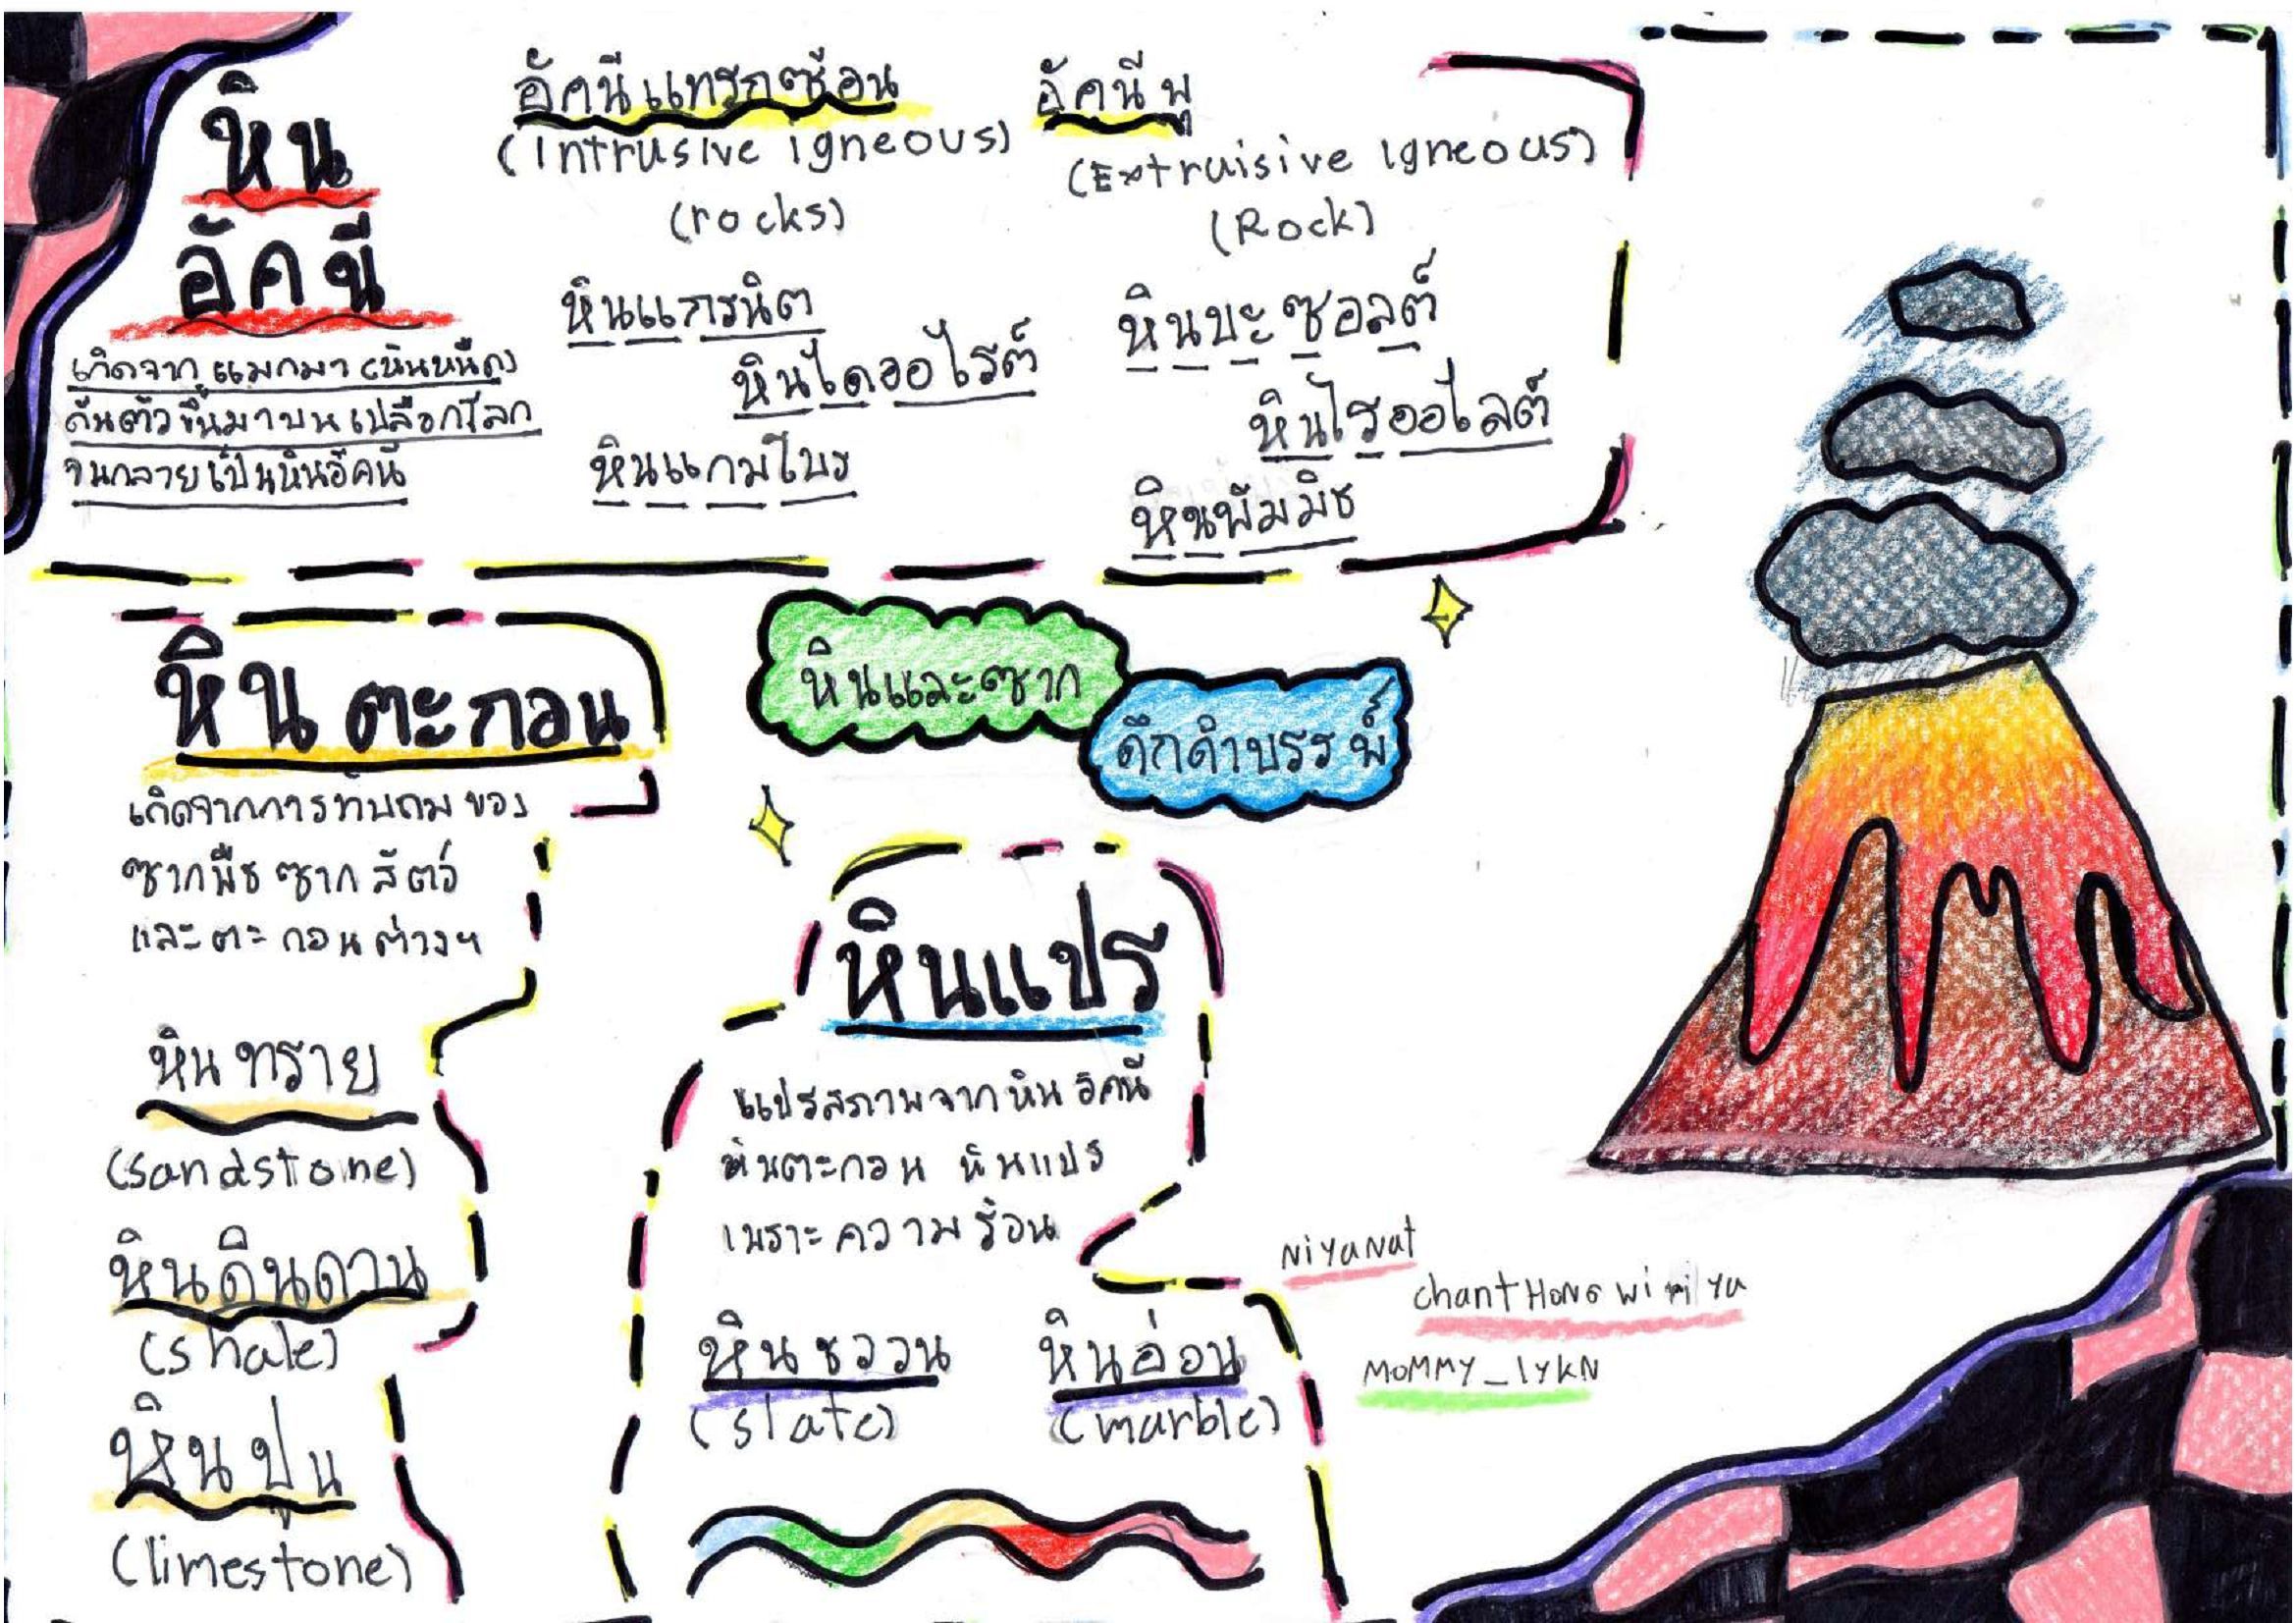 หิน
อัคนี
เกิดจาก แมกมา (หินหนืด)
ดันตัวขึ้นมาบนเปลือกโลก
จนกลายเป็นหินอัคนี
อัคนีแทรกซ้อน
(Intrusive igneous)
(rocks)
หินแกรนิต
หินไดออไรต์
หินแกมโบร
อัคนีพุ
(Extruisive igneous)
(Rock)
หินบะซอลต์
หินไรออไลต์
หินพัมมิช
หินและซาก
ดึกดำบรรพ์
หินตะกอน
เกิดจากการทับถมของ
ซากพืช ซากสัตว์
และตะกอนต่างๆ
หินทราย
(Sandstone)
หินดินดาน
(shale)
หินปูน
(limestone)
หินแปร
แปรสภาพจากหินอัคนี
หินตะกอน หินแปร
เพราะความร้อน
หินชววน
(slate)
หินอ่อน
(marble)
NiyaNat
MOMMY_lYKN